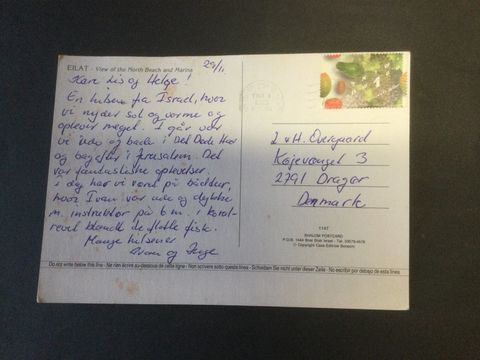 EILAT - View of the North Beach and Marina
29/11.
Kære Lis og Helge!
En hilsen fra Israel, hvor
vi nyder sol og varme og
oplever meget. I går var
vi ude og bade i Det Døde Hav
og bagefter i Jerusalem. Det
var fantastiske oplevelser.
I dag har vi været på bådtur,
hvor Ivan var ude og dykke
m. instruktør på 6 m. i koral-
revet blandt de flotte fisk.
Mange hilsener
Ivan og Inge
L & H. Overgaard
Køjevænget 3
2791 Dragør
Denmark
1147
SHALOM POSTCARD
© Copyright Casa Editrice Bonechi
Do not write below this line - Ne rien écrire au-dessous de cette ligne - Non scrivere sotto questa linea - Schreiben Sie nicht unter dieser Zeile - No escribir por debajo de esta línea